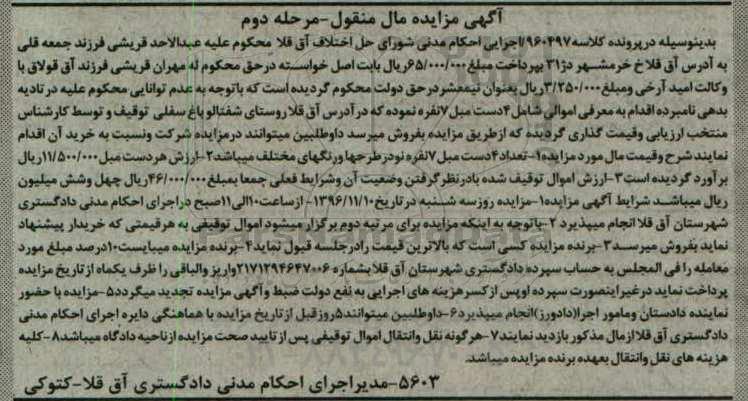 آگهی مزایده مال منقول-مرحله دوم
بدینوسیله درپرونده کلاسه۹۶۰۴۹۷/اجرایی احکام مدنی شورای حل اختلاف آق قلا محکوم علیه عبدالاحد قریشی فرزند جمعه قلی
به آدرس آق قلاخ خرمشهر دژ۳۱ بپرداخت مبلغ۶۵/۰۰۰/۰۰۰ریال بابت اصل خواسته درحق محکوم له مهران قریشی فرزند آق قولاق با
وکالت امید آرخی ومبلغ۳/۲۵۰/۰۰۰ریال بعنوان نیمعشردرحق دولت محکوم گردیده است که باتوجه به عدم توانایی محکوم علیه در تادیه
بدهی نامبرده اقدام به معرفی اموالی شامل۴دست مبل۷نفره نموده که درآدرس آق قلاروستای شفتالوباغ سفلی توقیف و توسط کارشناس
منتخب ارزیابی وقیمت گذاری گردیده که ازطریق مزایده بفروش میرسد داوطلبین میتوانند درمزایده شرکت ونسبت به خرید آن اقدام
نمایند شرح وقیمت مال مورد مزایده۱-تعداد۴دست مبل۷نفره نودرطرحها ورنگهای مختلف میباشد۲-ارزش هردست مبل۱۱/۵۰۰/۰۰۰ریال
برآورد گردیده است۳-ارزش اموال توقیف شده بادرنظرگرفتن وضعیت آن وشرایط فعلی جمعا بمبلغ۴۶/۰۰۰/۰۰۰ریال چهل وشش میلیون
ریال میباشد شرایط آگهی مزایده۱-مزایده روزسه شنبه درتاریخ۱۳۹۶/۱۱/۱۰- ازساعت۱۰الی۱۱صبح دراجرای احکام مدنی دادگستری
شهرستان آق قلاانجام میپذیرد ۲-باتوجه به اینکه مزایده برای مرتبه دوم برگزارمیشود اموال توقیفی به هرقیمتی که خریدار پیشنهاد
نماید بفروش میرسد۳-برنده مزایده کسی است که بالاترین قیمت رادرجلسه قبول نماید۴-برنده مزایده میبایست۱۰درصد مبلغ مورد
معامله رافی المجلس به حساب سپرده دادگستری شهرستان آق قلا بشماره ۲۱۷۱۲۹۴۶۴۷۰۰۶واریز والباقی را ظرف یکماه ازتاریخ مزایده
پرداخت نماید درغیراینصورت سپرده اوپس ازکسرهزینه های اجرایی به نفع دولت ضبط وآگهی مزایده تجدید میگردد۵-مزایده با حضور
نماینده دادستان ومامور اجرا(دادورز)انجام میپذیرد۶-داوطلبین میتوانند۵روزقبل ازتاریخ مزایده با هماهنگی دایره اجرای احکام مدنی
دادگستری آق قلاازمال مذکور بازدید نمایند۷-هرگونه نقل وانتقال اموال توقیفی پس ازتایید صحت مزایده ازناحیه دادگاه میباشد۸-کلیه
هزینه های نقل وانتقال بعهده برنده مزایده میباشد.
۵۶۰۳-مدیراجرای احکام مدنی دادگستری آق قلا-کتوکی